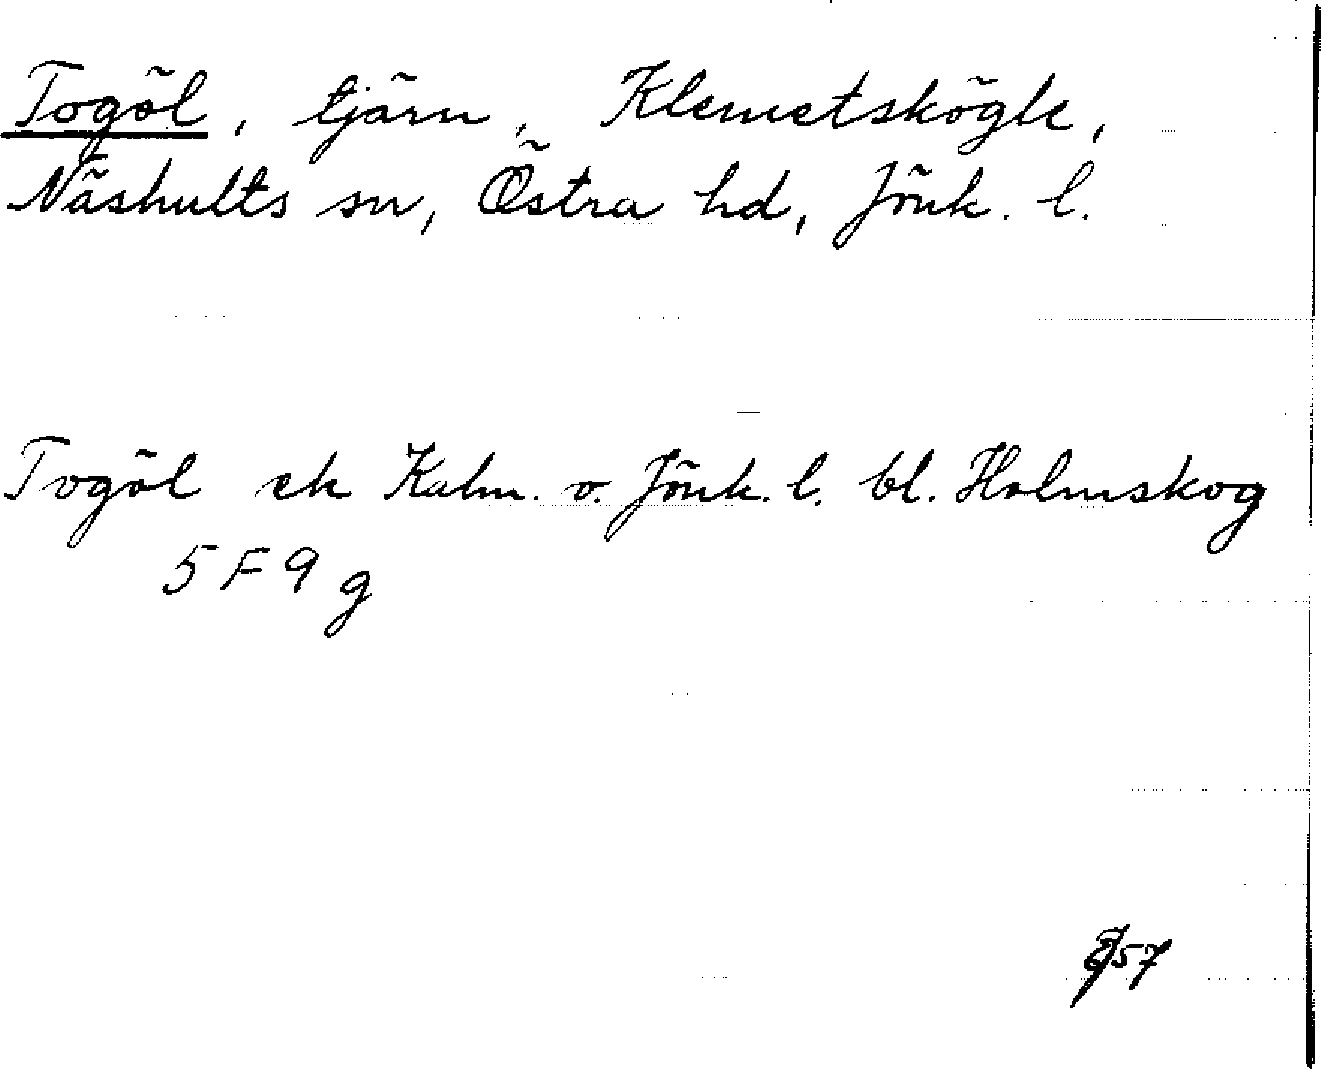 Togöl, tjärn, Klemetskögle,
Näshults sn, Östra hd, Jönk. l.
Togöl ek Kalm. o. Jönk. l. bl. Holmskog
5 F 9 g
57